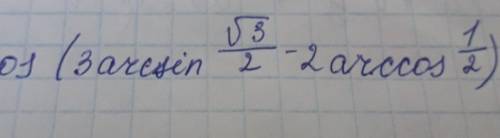 os (3 arcsin √3/2 - 2 arccos 1/2)